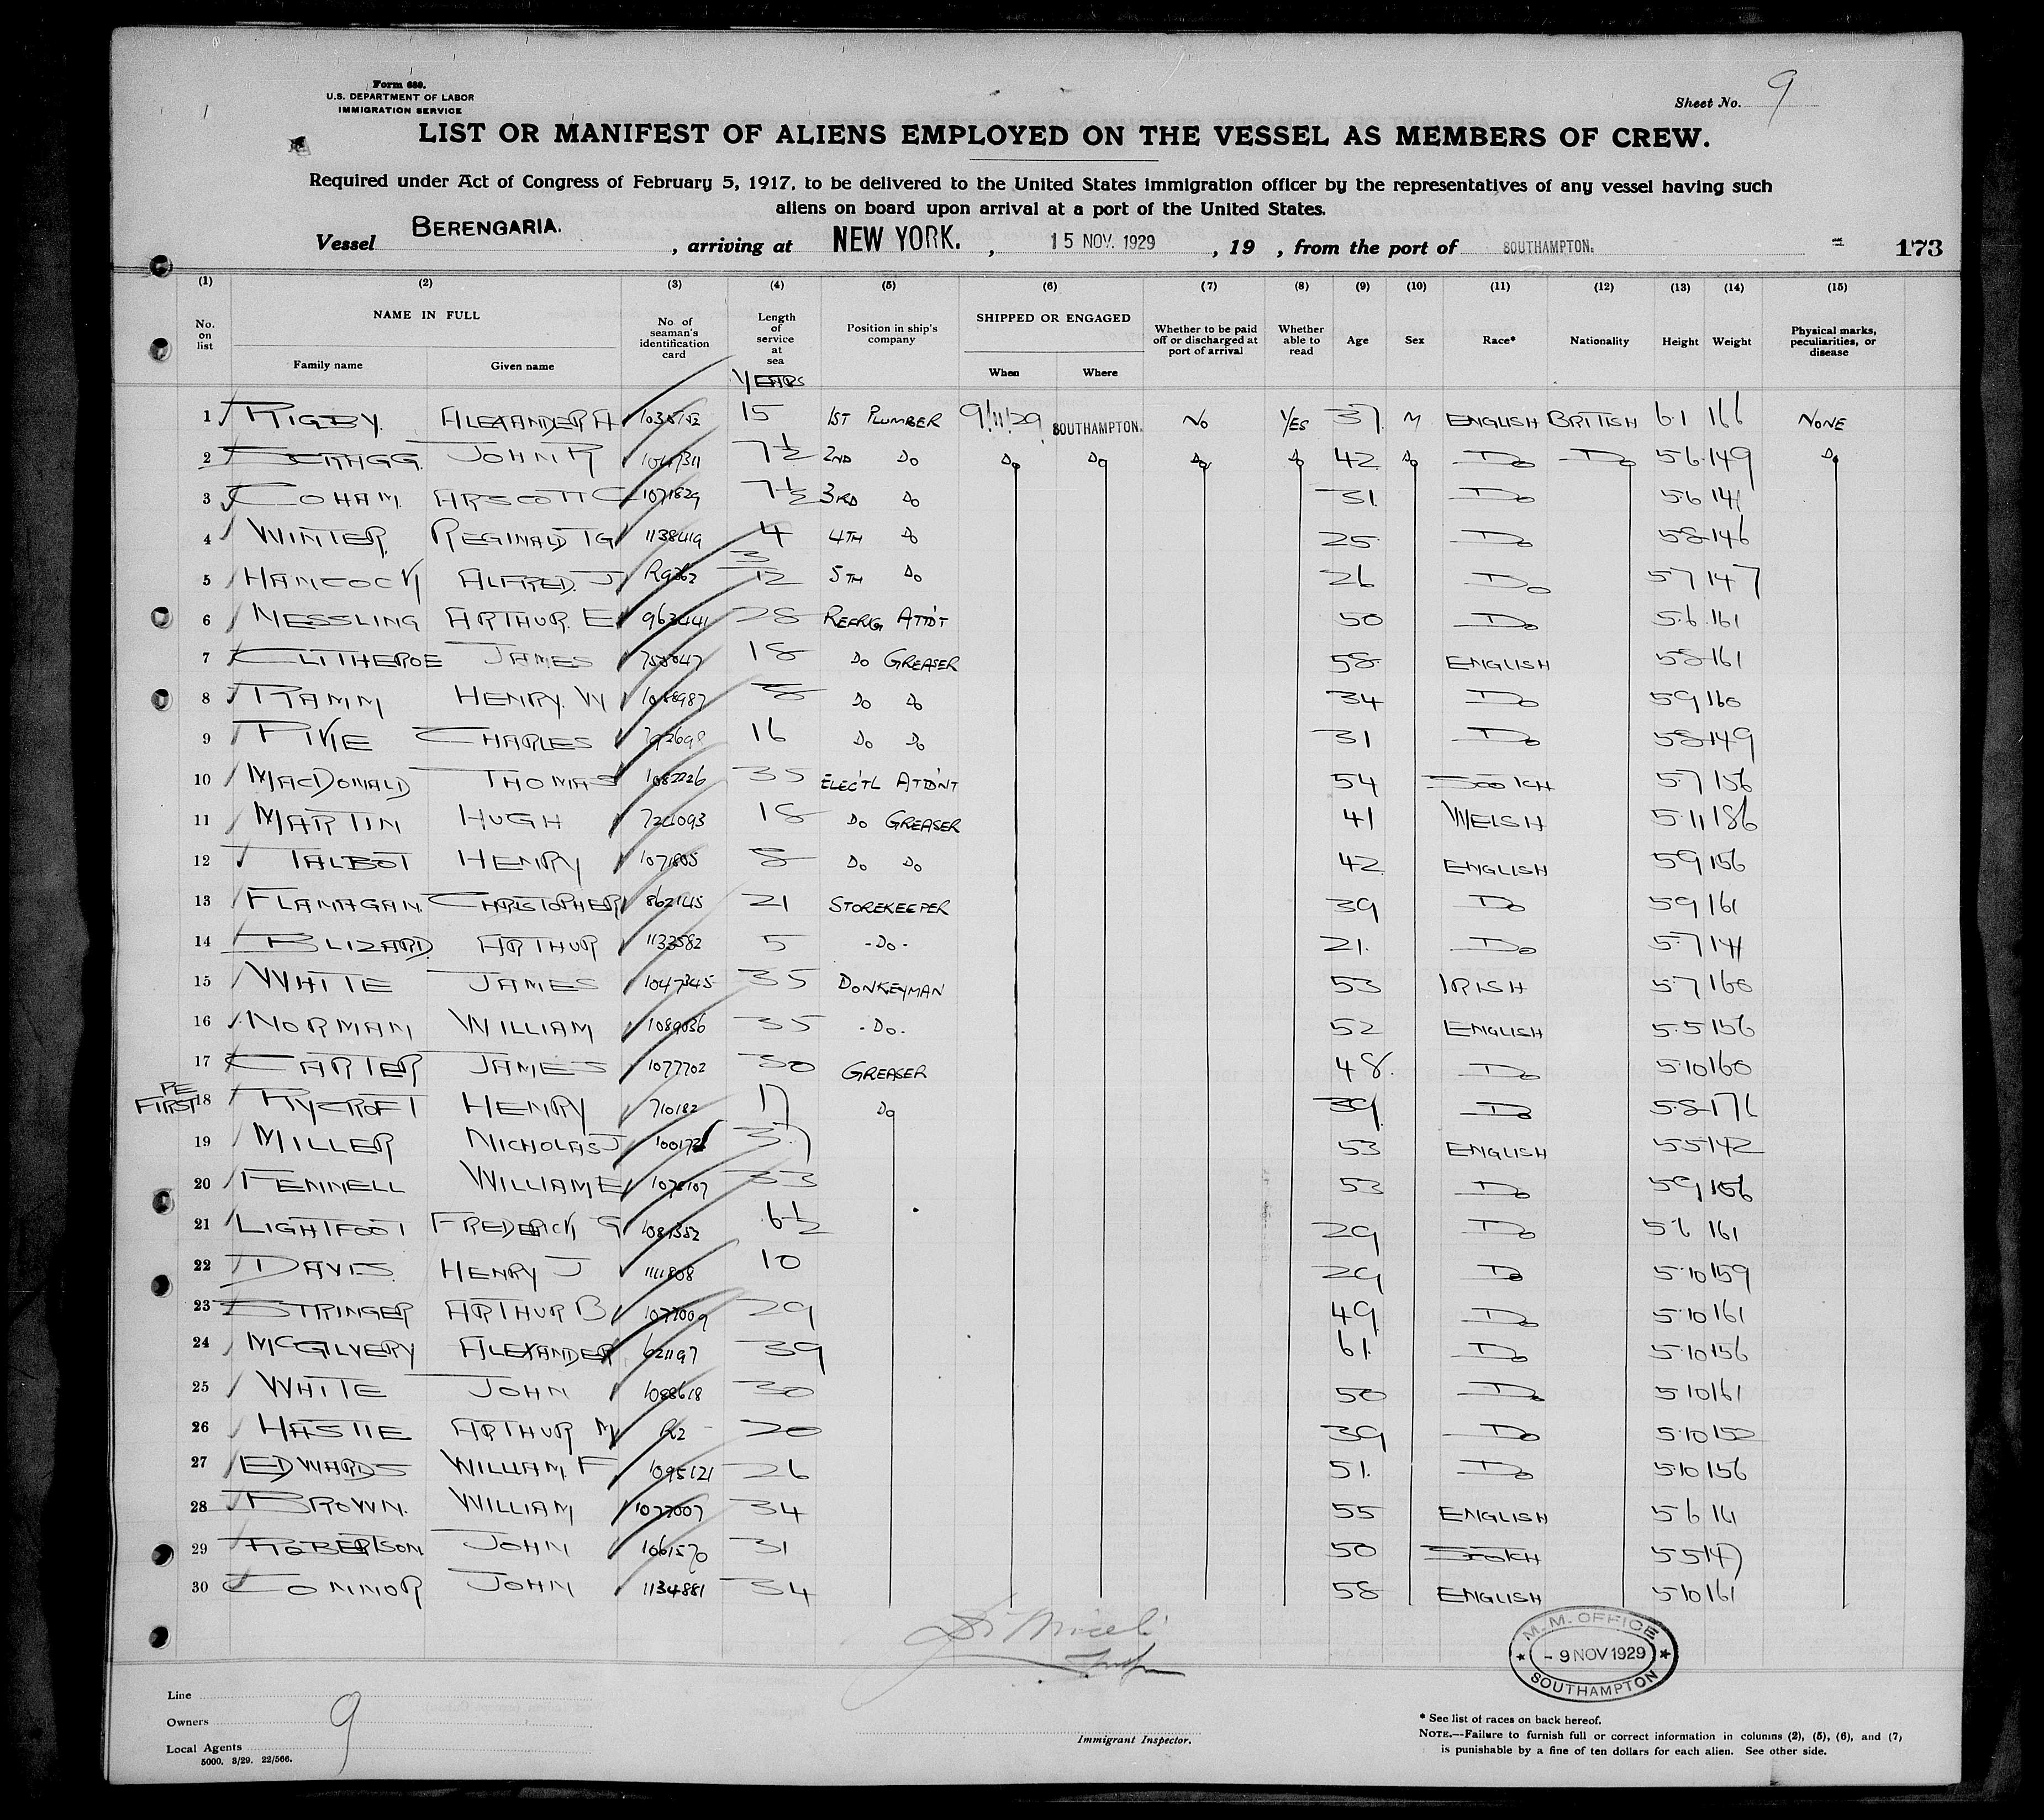 Form 680.
U.S. DEPARTMENT OF LABOR
IMMIGRATION SERVICE
Sheet No. 9
LIST OR MANIFEST OF ALIENS EMPLOYED ON THE VESSEL AS MEMBERS OF CREW.
Required under Act of Congress of February 5, 1917, to be delivered to the United States immigration officer by the representatives of any vessel having such
aliens on board upon arrival at a port of the United States.
Vessel BERENGARIA. , arriving at NEW YORK. , 15 NOV. 1929 , 19 , from the port of SOUTHAMPTON. 173
(1) (2) (3) (4) (5) (6) (7) (8) (9) (10) (11) (12) (13) (14) (15)
No. on list NAME IN FULL Family name Given name No. of seaman's identification card Length of service at sea YEARS Position in ship's company SHIPPED OR ENGAGED When Where Whether to be paid off or discharged at port of arrival Whether able to read Age Sex Race* Nationality Height Weight Physical marks, peculiarities, or disease
1 RIGBY. ALEXANDER A 15 1ST PLUMBER 9/11/29 SOUTHAMPTON. NO YES 37. M ENGLISH BRITISH 6.1 166 NONE
2 SCRAGG. JOHN R 1047311 7½ 2ND DO DO DO DO DO 42 DO DO DO 5.6 149 DO
3 COHAM. ARSCOTT C 1071829 7½ 3RD DO 31. DO 5.6 141
4 WINTER. REGINALD TG 1138419 4 4TH DO 25. DO 5.8 146
5 HANCOCK ALFRED. J R9362 3/12 5TH DO 26 DO 5.7 147
6 MESSLING ARTHUR. E 963441 28 REFRIG ATTDT 50 DO 5.6 161
7 CLITHEROE JAMES 758047 18 DO GREASER 58 ENGLISH 5.8 161
8 RAMM HENRY. W 1088987 8 DO DO 34 DO 5.9 160
9 PIKE CHARLES 16 DO DO 31 DO 5.8 149
10 MACDONALD THOMAS 1082226 35 ELEC'TL ATTD'NT 54 SCOTCH 5.7 156
11 MARTIN HUGH 724093 18 DO GREASER 41 WELSH 5.11 186
12 TALBOT HENRY 1071805 8 DO DO 42 ENGLISH 5.9 156
13 FLANAGAN. CHRISTOPHER 862145 21 STOREKEEPER 39 DO 5.9 161
14 BLIZARD. ARTHUR 1133582 5 -DO- 21. DO 5.7 141
15 WHITE JAMES 1047345 35 DONKEYMAN 53 IRISH 5.7 160
16 NORMAN WILLIAM 1089036 35 -DO- 52 ENGLISH 5.5 156
17 CARTER JAMES 1077702 30 GREASER 48. DO 5.10 160
RE FIRST 18 RYCROFT HENRY 710182 17 DO 39. DO 5.8 176
19 MILLER NICHOLAS J 37 53 ENGLISH 5.5 142
20 FENNELL WILLIAM E 33 53 DO 5.9 156
21 LIGHTFOOT FREDERICK G 1081352 6½ 29 DO 5.6 161
22 DAVIS. HENRY J 1111808 10 29 DO 5.10 159
23 STRINGER ARTHUR B 1077009 29 49 DO 5.10 161
24 MCGILVERY ALEXANDER 621197 39 61. DO 5.10 156
25 WHITE JOHN 1088618 30 50 DO 5.10 161
26 HASTIE ARTHUR M 20 39 DO 5.10 152
27 EDWARDS WILLIAM. F 1095121 26 51. DO 5.10 156
28 BROWN. WILLIAM 1077007 34 55 ENGLISH 5.6 161
29 ROBERTSON JOHN 1061570 31 50 SCOTCH 5.5 147
30 CONNOR JOHN 1134881 34 58 ENGLISH 5.10 161
M. M. OFFICE
- 9 NOV 1929
SOUTHAMPTON
Line
Owners
9
Local Agents
5000. 3/29. 22/566.
Immigrant Inspector.
* See list of races on back hereof.
NOTE.—Failure to furnish full or correct information in columns (2), (5), (6), and (7,
is punishable by a fine of ten dollars for each alien. See other side.